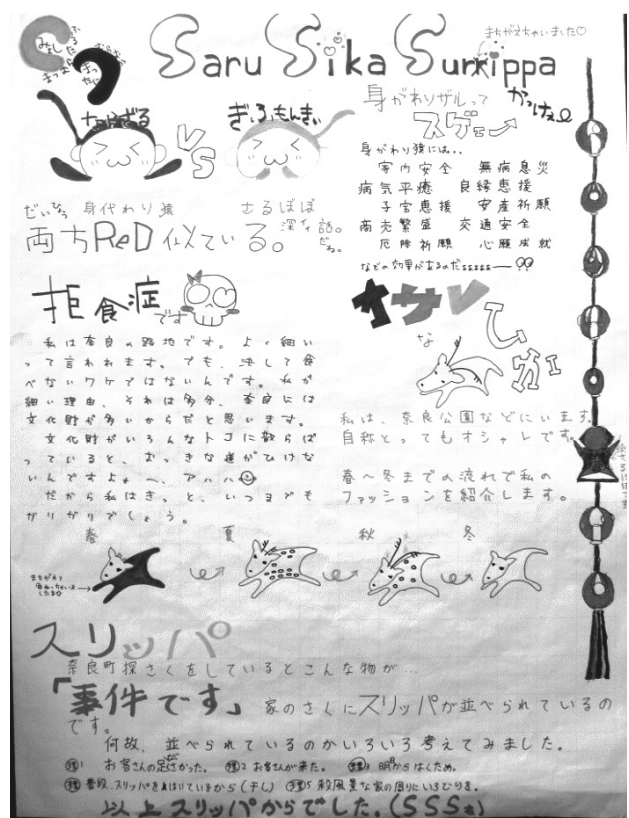 まちがえちゃいました♡
Saru Sika Surrippa
ぎふもんきぃ
VS
身がわりザルって
かっけぇ
スゲェー
身がわり猿には・・
家内安全 無病息災
病気平癒 良縁恵授
子宮恵援 安産祈願
商売繁盛 交通安全
厄除祈願 心願成就
などの効果があるのだ
だいひょう 身代わり猿 さるぼぼ
両ちReD似ている。
深な話。
だね。
拒食症です
私は奈良の路地です。よく細い
って言われます。でも、決して食
べないワケではないんです。私が
細い理由、それは多分、奈良には
文化財が多いからだと思います。
文化財がいろんなトコに散らば
っていると、おっきな道がひけな
いんですよぉ〜、アハハ
だから私はきっと、いつまでも
がりがりでしょう。
オサレ
な
しカ
私は、奈良公園などにいます。
自称とってもオシャレです。
春〜冬までの流れで私の
ファッションを紹介します。
春 夏 秋 冬
まちがえて
しました
スリッパ
奈良町探さくをしているとこんな物が…
「事件です」 家のさくにスリッパが並べられているの
です。
何故、並べられているのかいろいろ考えてみました。
1 お客さんの足さかった。 2 お客さんが来た。 3 明日からはくため。
普段、スリッパを身はいているから(干し) 5 殺風景な家の周りにいろどりを。
以上スリッパからでした。(SSSも)